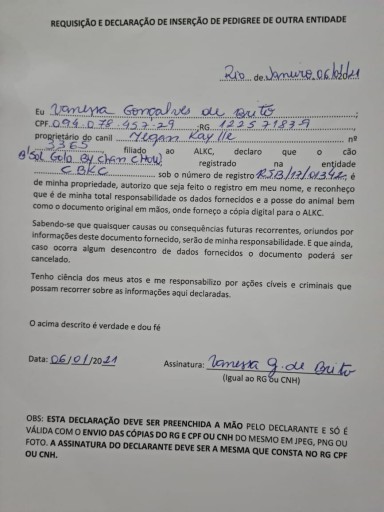 REQUISIÇÃO E DECLARAÇÃO DE INSERÇÃO DE PEDIGREE DE OUTRA ENTIDADE
Rio de Janeiro, 06/01/2021
Eu Vanessa Gonçalves de Brito
CPF 094.078.457-29 ;RG 122571839
proprietário do canil Megan Kaylle nº
3365 filiado ao ALKC, declaro que o cão
Sol Gold By Chan Chow registrado na entidade
CBKC sob o número de registro RSB/17/01342, é
de minha propriedade, autorizo que seja feito o registro em meu nome, e reconheço
que é de minha total responsabilidade os dados fornecidos e a posse do animal bem
como o documento original em mãos, onde forneço a cópia digital para o ALKC.
Sabendo-se que quaisquer causas ou consequências futuras recorrentes, oriundos por
informações deste documento fornecido, serão de minha responsabilidade. E que ainda,
caso ocorra algum desencontro de dados fornecidos o documento poderá ser
cancelado.
Tenho ciência dos meus atos e me responsabilizo por ações cíveis e criminais que
possam recorrer sobre as informações aqui declaradas.
O acima descrito é verdade e dou fé
Data: 06/01/2021 Assinatura: Vanessa G. de Brito
(Igual ao RG ou CNH)
OBS: ESTA DECLARAÇÃO DEVE SER PREENCHIDA A MÃO PELO DECLARANTE E SÓ É
VÁLIDA COM O ENVIO DAS CÓPIAS DO RG E CPF OU CNH DO MESMO EM JPEG, PNG OU
FOTO. A ASSINATURA DO DECLARANTE DEVE SER A MESMA QUE CONSTA NO RG CPF
OU CNH.